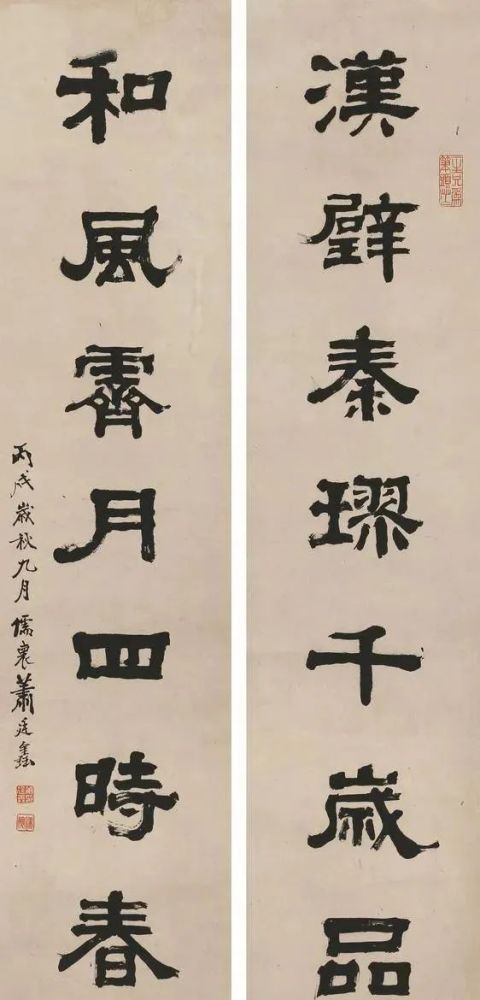 漢璧秦璆千歲品
和風霽月四時春
丙戌歲秋九月 蕭廷